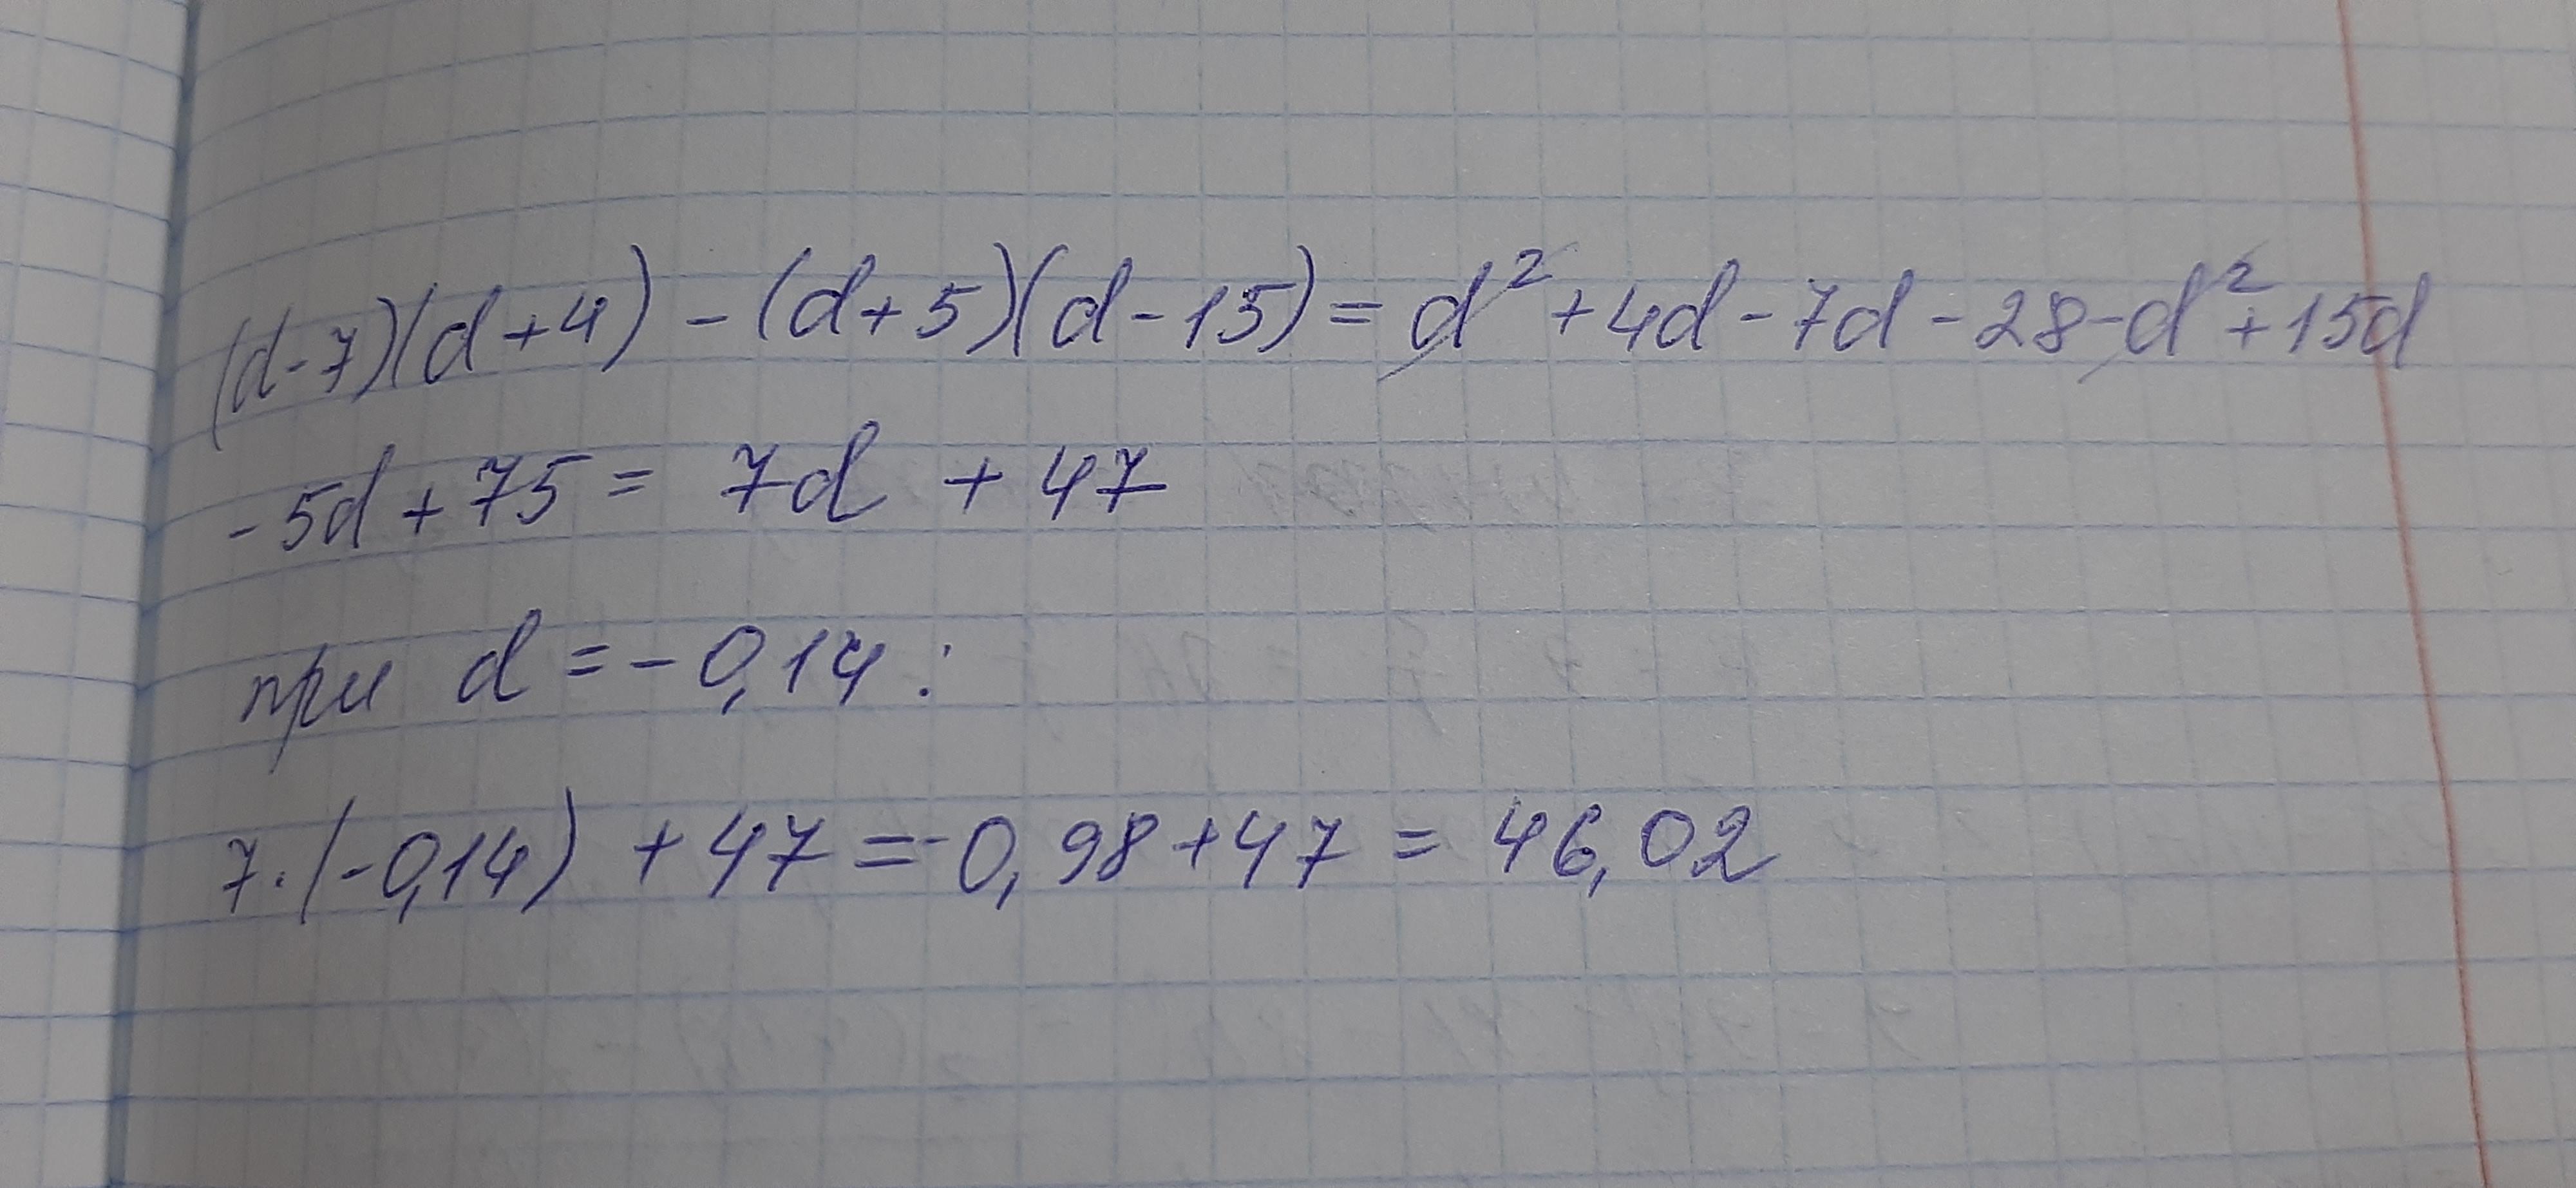 (d-7)(d+4) - (d+5)(d-15) = d² + 4d - 7d - 28 - d² + 15d
- 5d + 75 = 7d + 47
при d = - 0,14 :
7·(-0,14) + 47 = -0,98 + 47 = 46,02